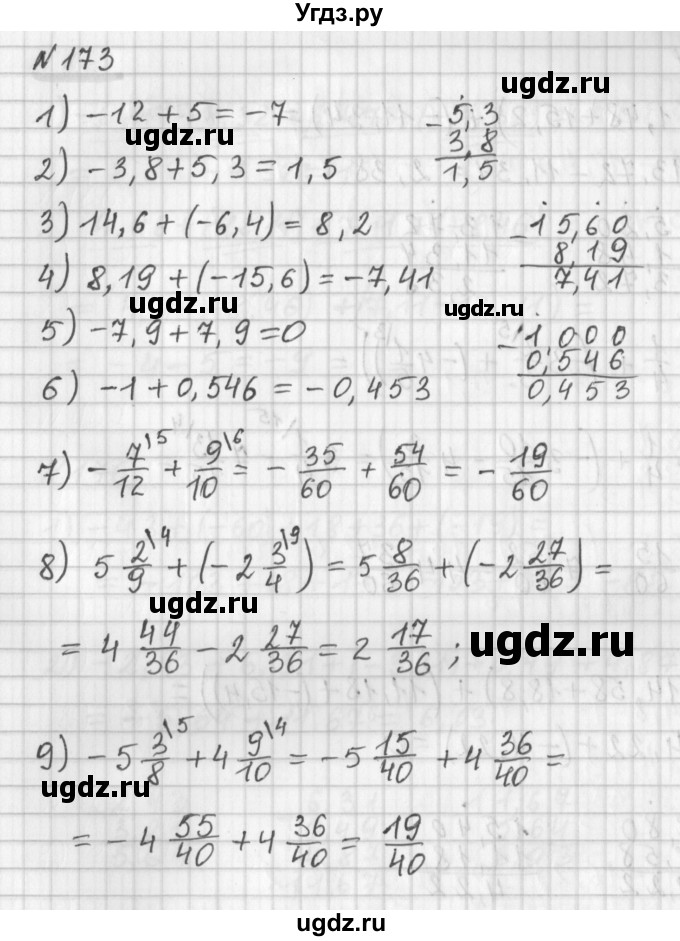 Угдз.ру
№ 173
1) −12 + 5 = −7
ugdz.ru
2) −3,8 + 5,3 = 1,5
− 5,3
3,8
1,5
3) 14,6 + (−6,4) = 8,2
4) 8,19 + (−15,6) = −7,41
− 15,60
8,19
7,41
ugdz.ru
ugdz.ru
5) −7,9 + 7,9 = 0
6) −1 + 0,546 = −0,453
− 1,000
0,546
0,453
7) − 7/12 \5 + 9/10 \6 = − 35/60 + 54/60 = − 19/60
8) 5 2/9 \4 + (−2 3/4 \9) = 5 8/36 + (−2 27/36) =
ugdz.ru
= 4 44/36 − 2 27/36 = 2 17/36 ;
ugdz.ru
9) −5 3/8 \5 + 4 9/10 \4 = −5 15/40 + 4 36/40 =
ugdz.ru
= −4 55/40 + 4 36/40 = 19/40
ugdz.ru
ugdz.ru